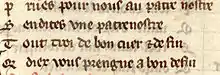 P ries pour nous au patre nostre
S endites vne patrenostre
T out troi de bon cuer & de fin
Q diex vous prengne a bon defin